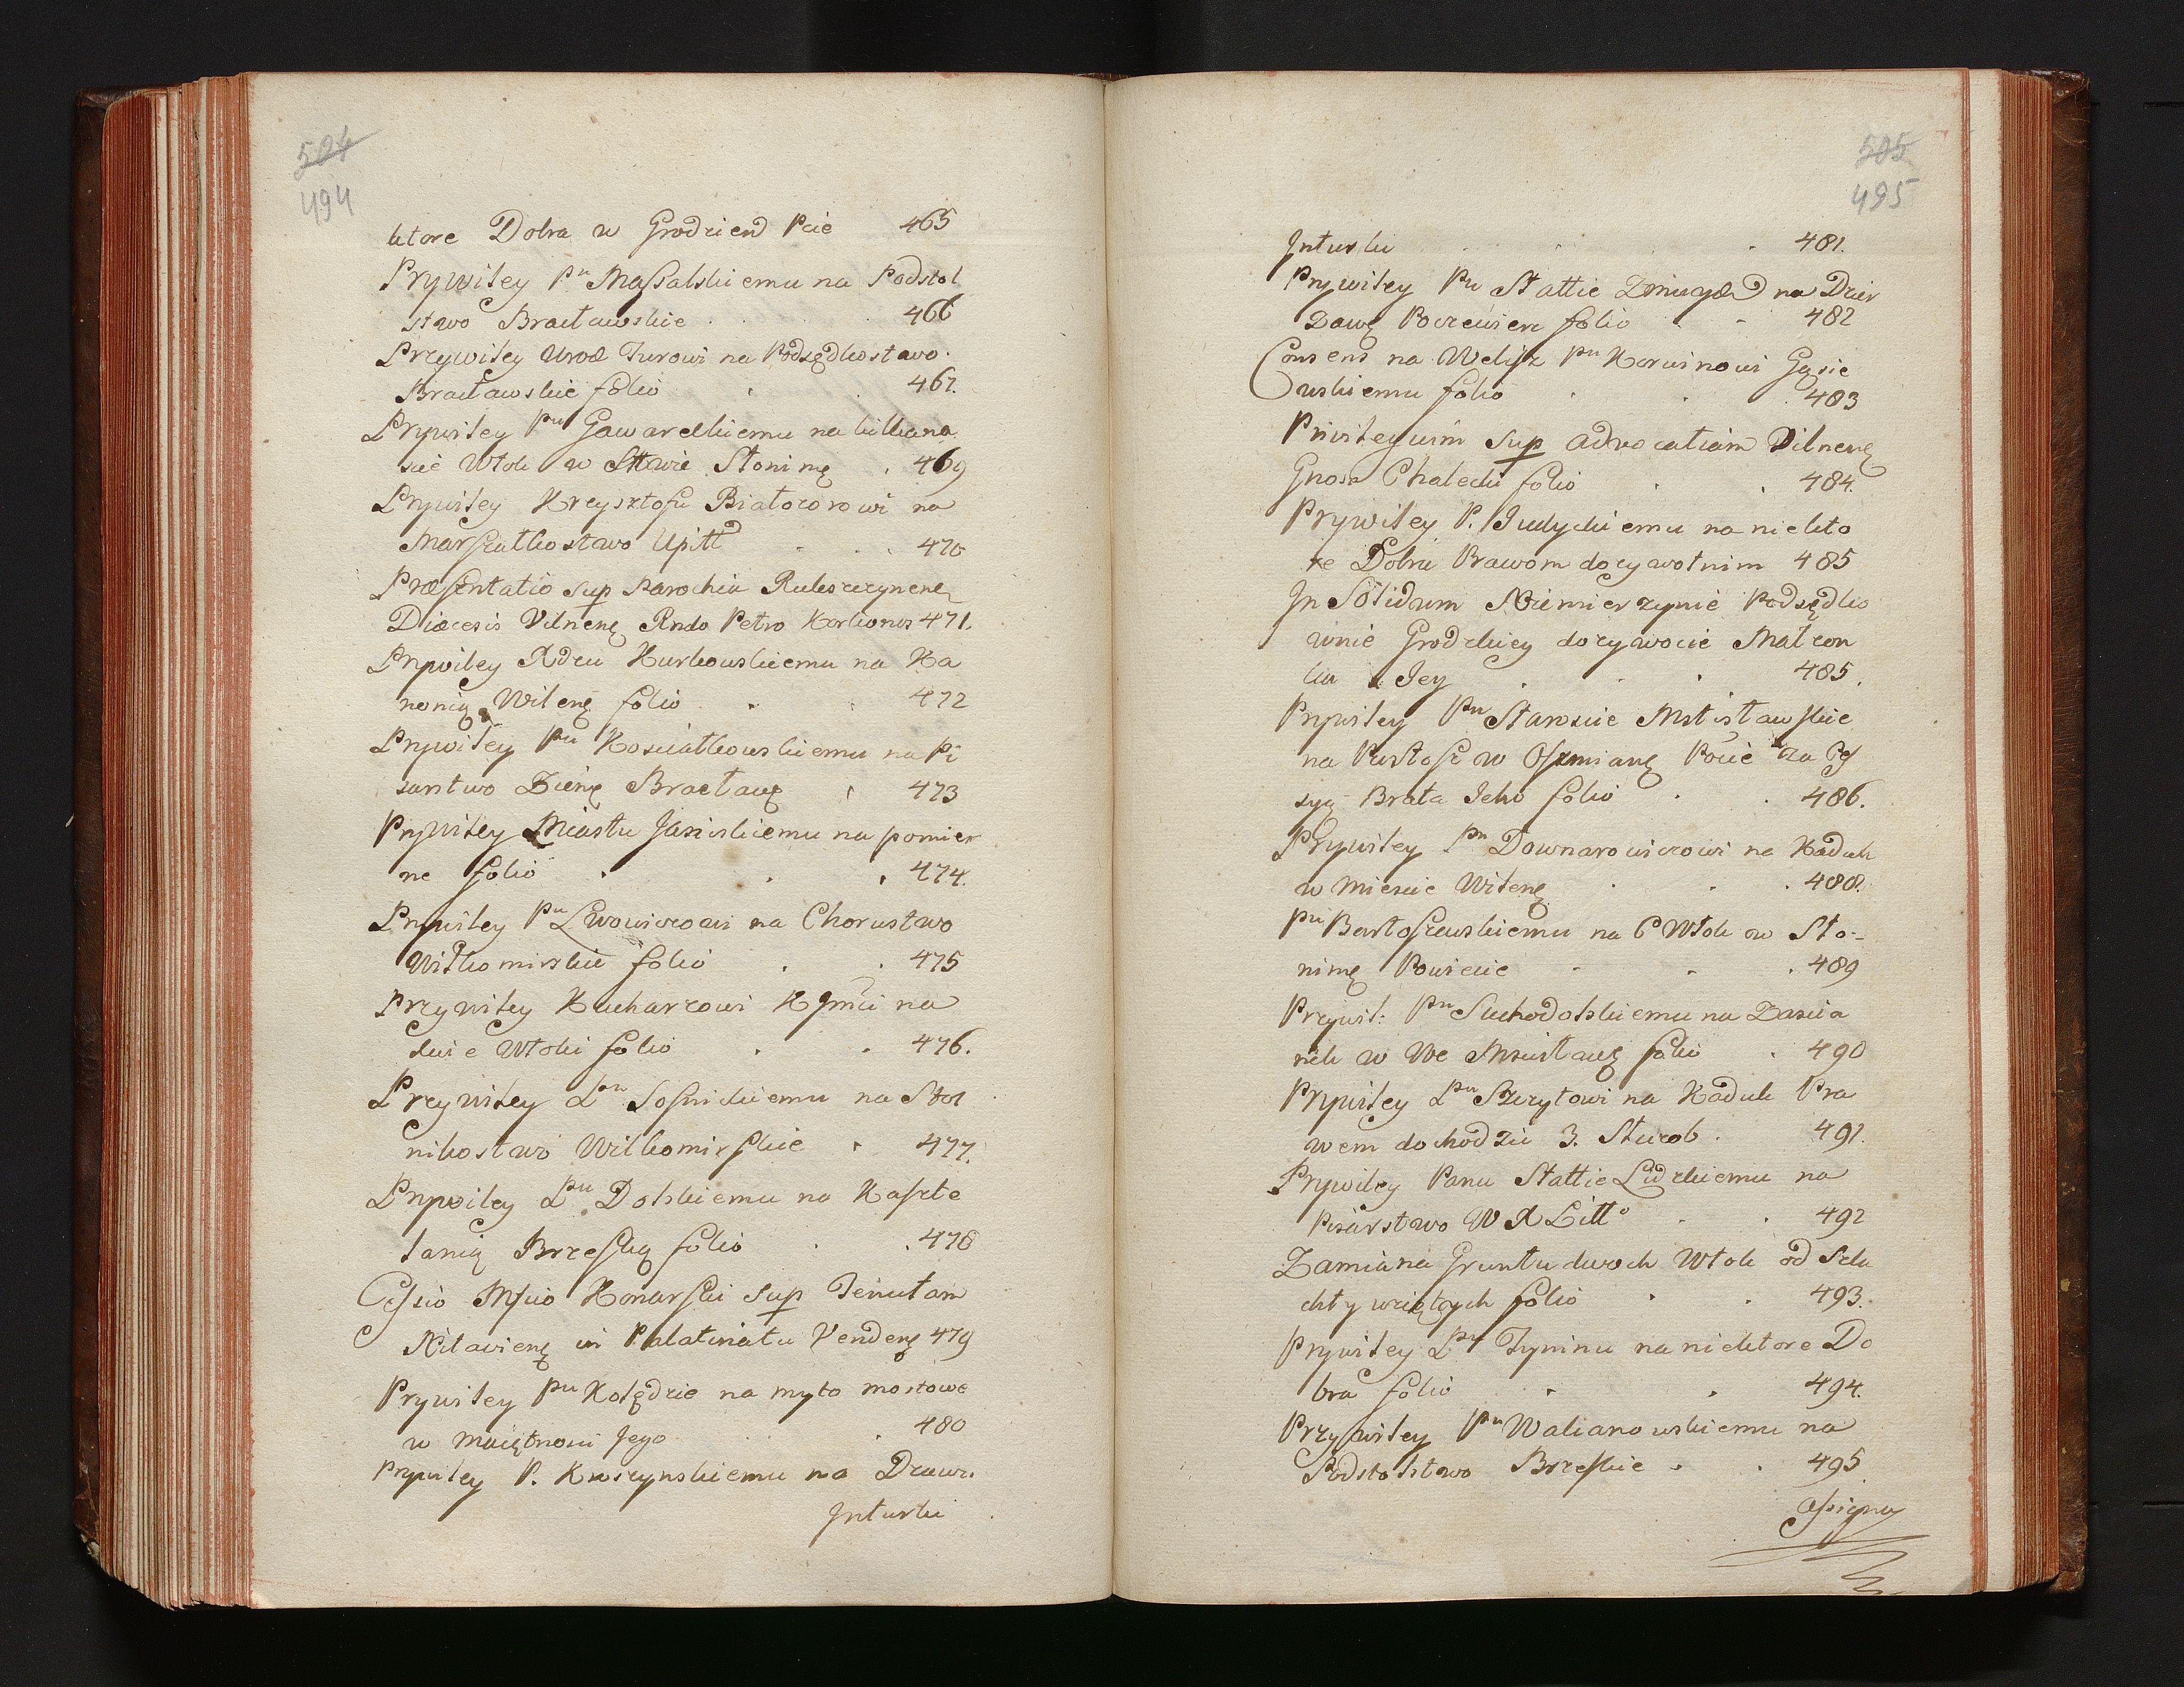 504
494
ktore Dobra w Grodzień Pcie 465
Prywiley Pu Massalskiemu na Podstol
stwo Bracławskie 466
Przywiley Urod Turowi na Podsędkostwo
Bracławskie folio 467.
Prywiley Pu Gawareckiemu na kilkana
scie Włok w Sttwie Słonimę 469
Prywiley Krzysztofu Białozorowi na
Marszałkostwo Upitt 470
Præsentatio sup Parochia
Diæcesis Vilnenę Rndo Petro 471.
Prywiley Xdzu Kurkowskiemu na Ka
nonią Wilenę folio 472
Prywiley Pu Kosciałkowskiemu na Pi
sarstwo Ziemę Bracławę 473
Prywiley Miastu Jasinskiemu na pomier
ne folio 474.
Prywiley Pu Lwowiczowi na Chorustwo
Wiłkomirskie folio 475
Przywiley Kucharzowi K Jmci na
dwie Włoki folio 476.
Przywiley Pu Sosnickiemu na Stol
nikostwo Wiłkomirskie 477.
Prywiley Pu Dolskiemu na Kaszte
lanią Brzeską folio 478
Cessio Mfico Konarski sup Tenutam
Nitavienę in Palatinatu Vendenę 479
Prywiley Pu Kolędzie na myto mostowe
w Maiętnosci Jego 480
Prywiley P. Kroszynskiemu na Drawi.
Inturki
505
495
Inturki 481.
Prywiley Pu Sttcie Zmuydz na Dzier
dawę folio 482
Consens na Weliż Pu Korwinowi Gąsie
wskiemu folio 483
Privilegium sup advocatiam Vilnenę
Gnoso Chalecki folio 484.
Prywiley P. Judyckiemu na niekto
re Dobra Prawom dożywotnim 485
In Solidum Niemierzynie Podsędko
wnie Grodzkiey dożywocie Małzon
ka Jey 485.
Prywiley Pu Staroscie Mstisławskie
na Pustosz w Oszmianę Powcie za Ces
syą Brata Jeho folio 486.
Prywiley Pu Downarowiczowi na Kaduk
w Miescie Wilenę 488.
Pu Bartoszewskiemu na 6 Włok w Sło-
nimę Powiecie 489
Przywil: Pu Suchodolskiemu na Zascia
nek w We Mscisławę folio 490
Prywiley Pu Szczytowi na Kaduk Pra
wem dochodzic 3. Sturob. 491.
Prywiley Panu Sttcie Lidzkiemu na
Pisarstwo W X Litto 492
Zamiana Gruntu dwoch Włok od Szla
chty wziętych folio 493.
Prywiley Pu Tyninu na niektore Do
bra folio 494.
Przywiley Pu Walianowskiemu na
Podstolstwo Brzeskie 495
Assigna